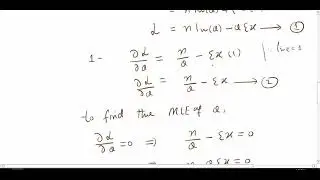 ℒ = n ln(a) - a Σx ⟶ ①
1- ∂ℒ/∂a = n/a - Σx (1)
∂ℒ/∂a = n/a - Σx ⟶ ②
to find the MLE of a,
∂ℒ/∂a = 0 ⇒ n/a - Σx = 0